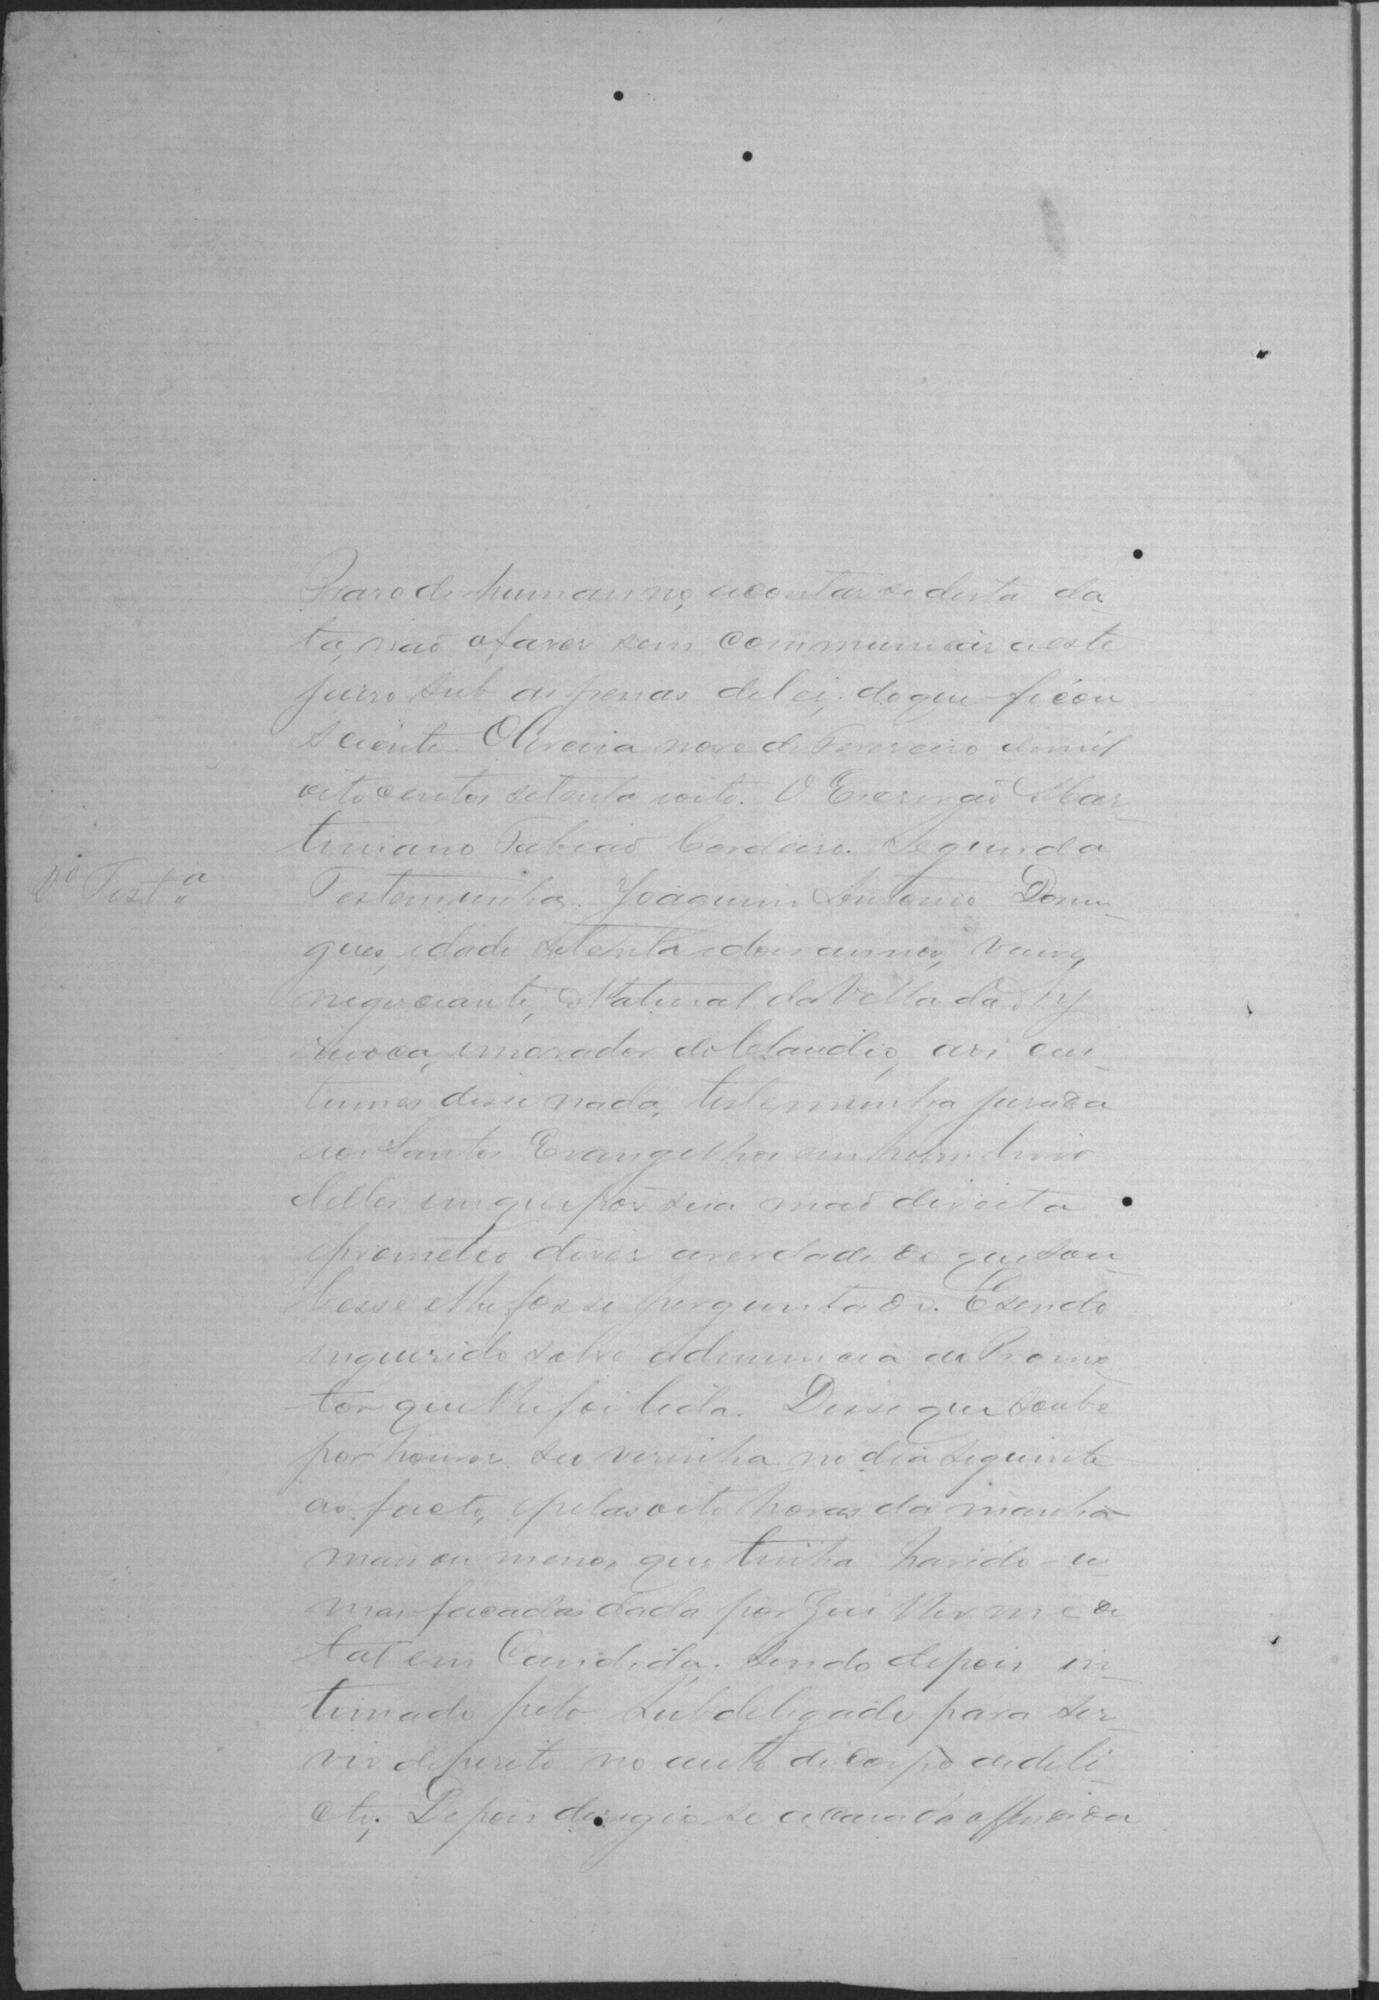 Praso de hum anno, acontar se desta da
ta, não ofaser sem communicar aeste
juiso sub as penas dalei, doque ficou
sciente. Oliveira nove de Fevereiro demil
oito centos setenta eoito. O Escrivão Mar
tiniano Fabião Cordeiro. Segunda
2ª Testª
Testemunha. Joaquim Antonio Domin
gues, idade setenta edois annos, viuvo,
negociante, Natural da Villa da Ay
ruoca, emorador do Claudio, aos cus
tumes disse nada, testemunha jurada
aos Santos Evangelhos em hum livro
delles em que pôs sua mão direita
eprometeo diser averdade do que sou
besse elhe fosse perguntado. Esendo
inquerido sobre adenuncia do Promo
tor que lhe foi lida. Disse que soube
por huma sua visinha no dia seguinte
ao facto, epelas oito horas da manhã
mais ou menos que tinha havido u
mas facadas dada por Guilherme de
tal em Candida. Sendo depois in
timado pelo Subdelegado para ser
vir deperito no auto de corpo dedeli
cto; Depois dirigio se acasa da offendida